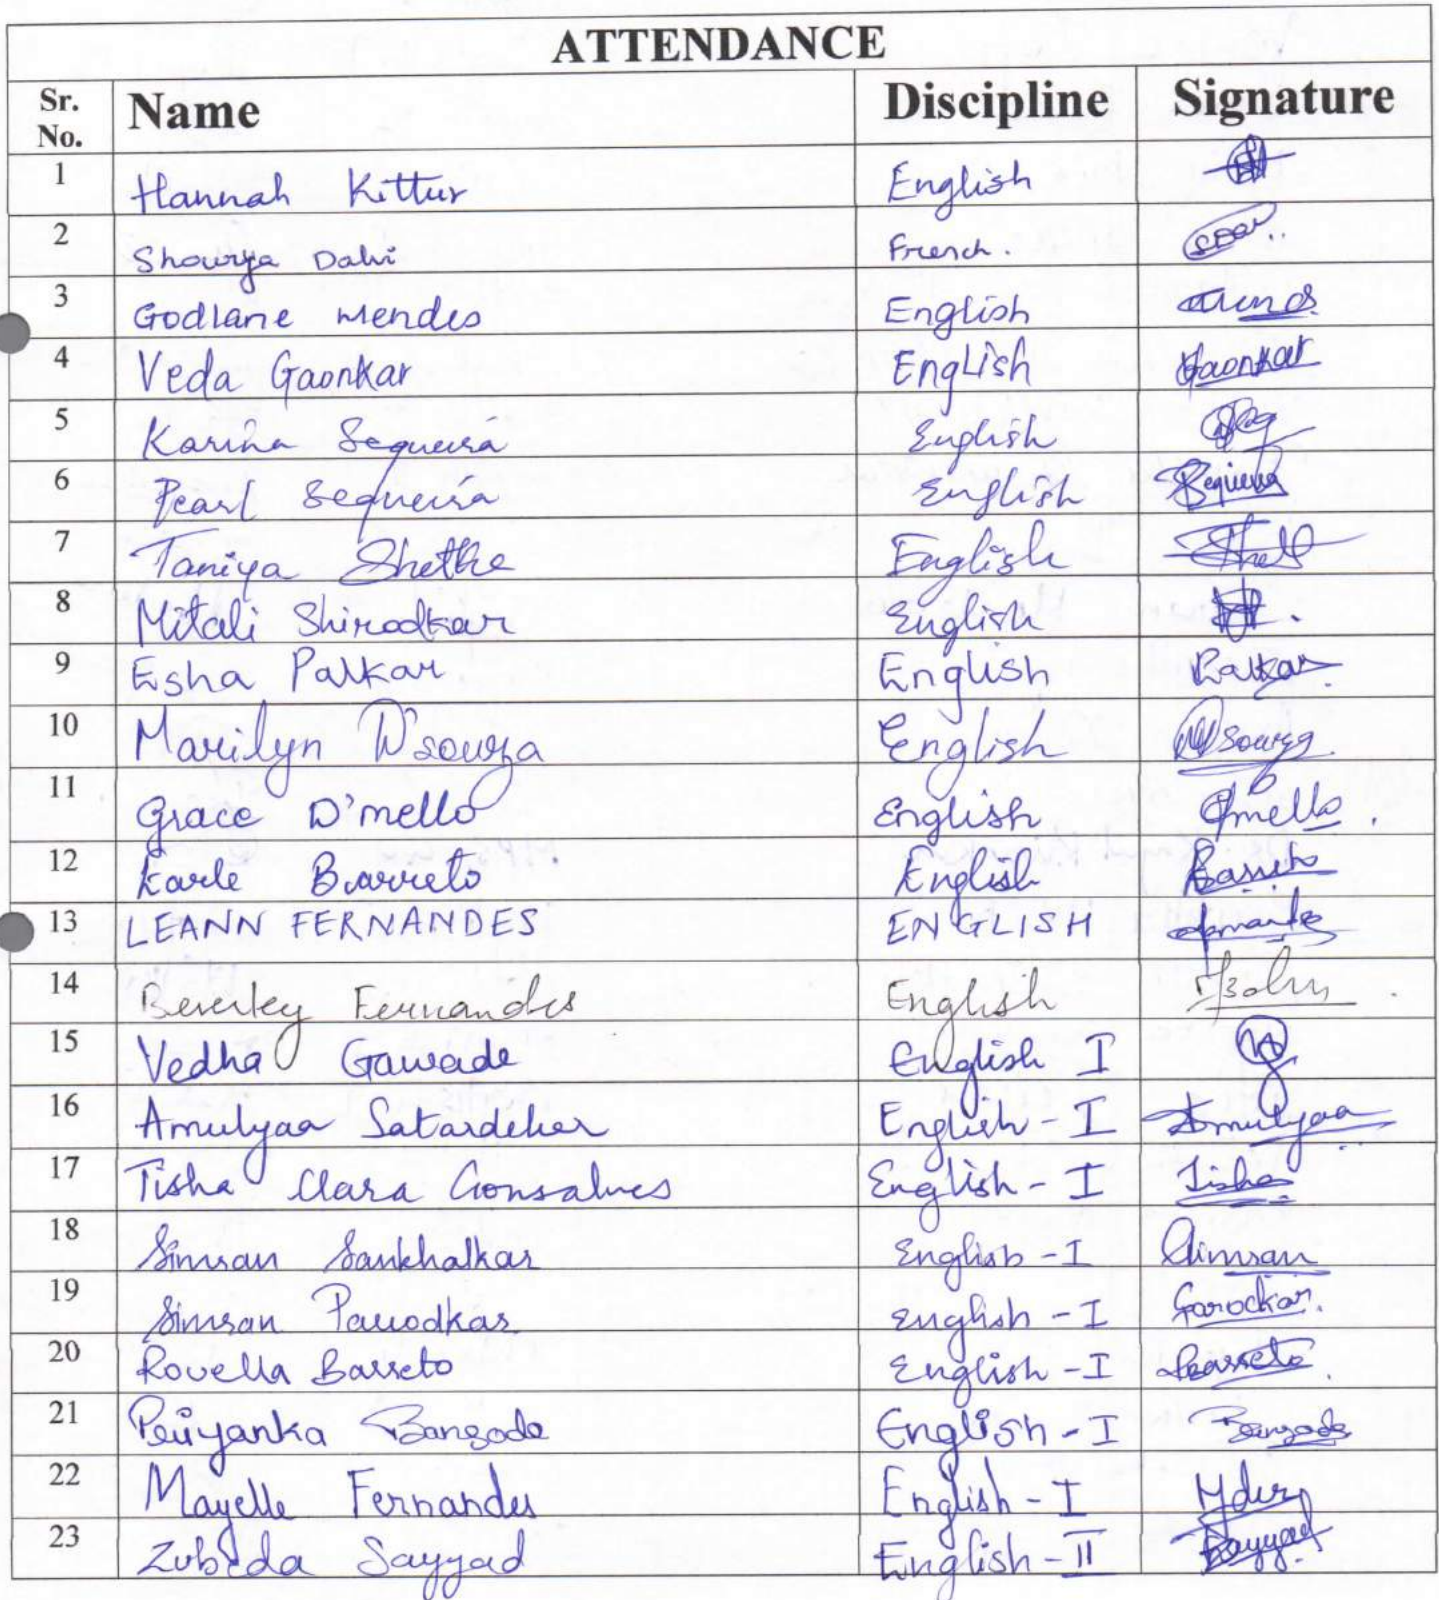 ATTENDANCE
Sr. No. Name Discipline Signature
1 Hannah Kittur English
2 Shourya Dalvi French.
3 Godlane Mendes English
4 Veda Gaonkar English Gaonkar
5 Karina Sequeira English
6 Pearl Sequeira English Sequeira
7 Taniya Shetke English
8 Mitali Shirodkar English
9 Esha Palkar English Palkar
10 Marilyn D'souza English Dsouza
11 Grace D'mello English Dmello
12 Karle Barreto English Barreto
13 LEANN FERNANDES ENGLISH
14 Beverley Fernandes English
15 Vedha Gawade English I
16 Amulyaa Satardeker English - I Amulyaa
17 Tisha Clara Gonsalves English - I Tisha
18 Simran Sankhalkar English - I Simran
19 Simran Parodkar English - I Parodkar.
20 Rovella Barreto English - I Barreto
21 Priyanka Bansode English - I Bansode
22 Mayelle Fernandes English - I
23 Zubeda Sayyad English - II Sayyad